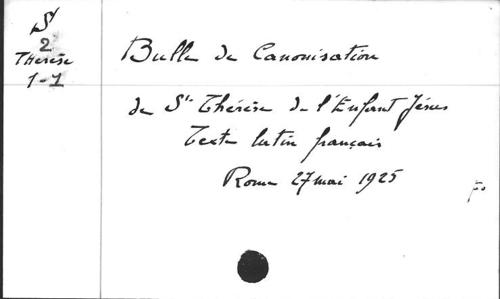 St
2
Thérèse
1-1
Bulle de Canonisation
de Ste Thérèse de l'Enfant Jésus
Texte latin français
Rome 27 mai 1925